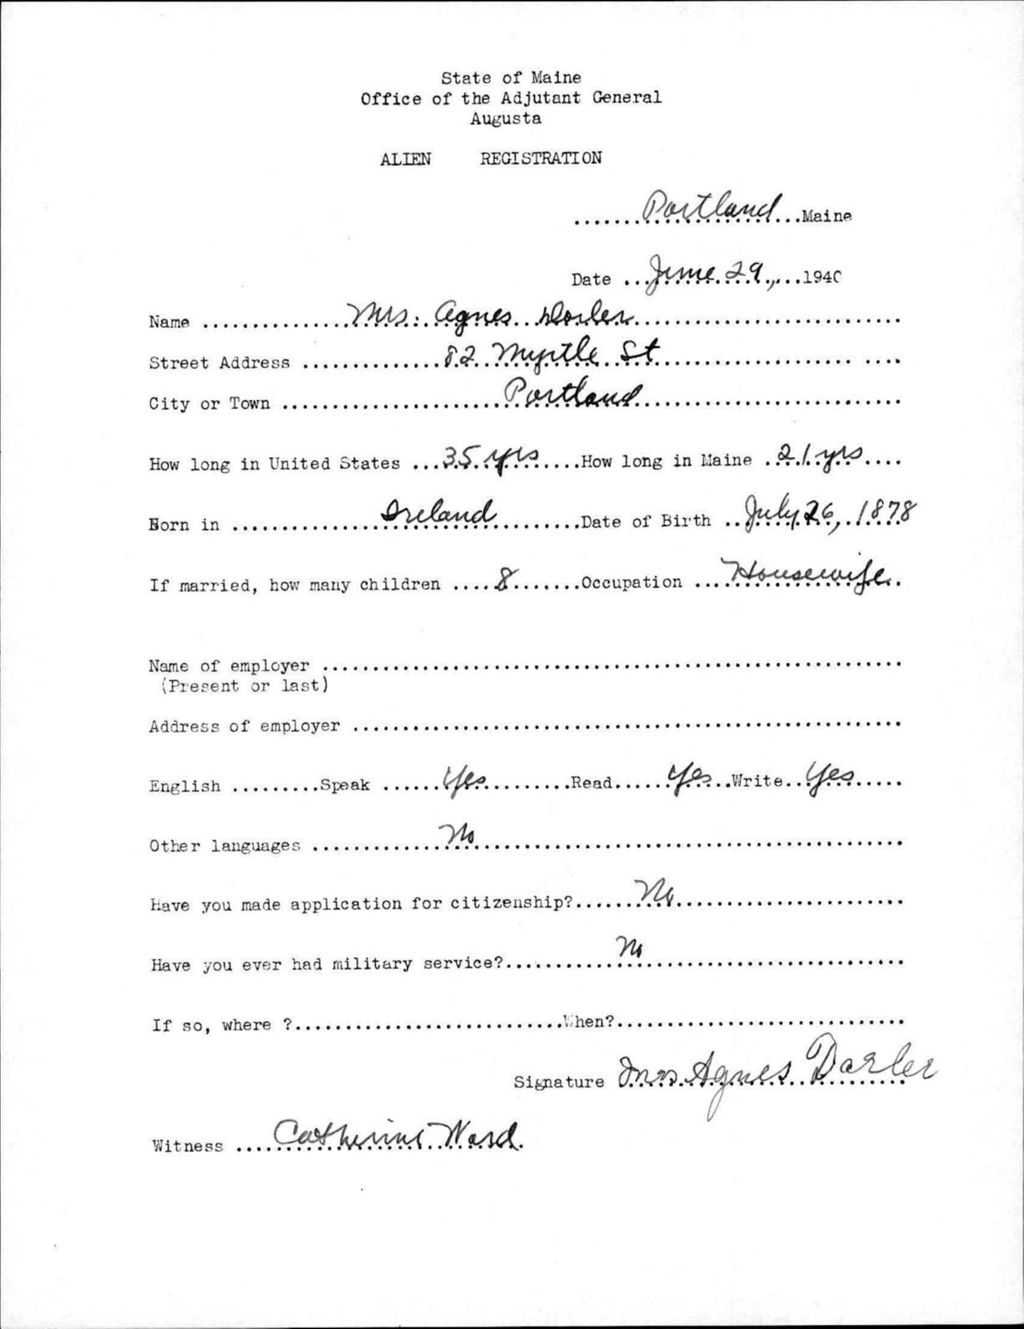 State of Maine
Office of the Adjutant General
Augusta
ALIEN REGISTRATION
Portland Maine
Date June 29, 1940
Name Mrs. Agnes
Street Address 82 Myrtle St
City or Town Portland
How long in United States 35 yrs How long in Maine 21 yrs
Born in Ireland Date of Birth July 26, 1878
If married, how many children 8 Occupation Housewife
Name of employer
(Present or last)
Address of employer
English Speak Yes Read Yes Write Yes
Other languages No
Have you made application for citizenship? No
Have you ever had military service? No
If so, where ? When?
Signature Mrs Agnes Darler
Witness Catherine Ward.